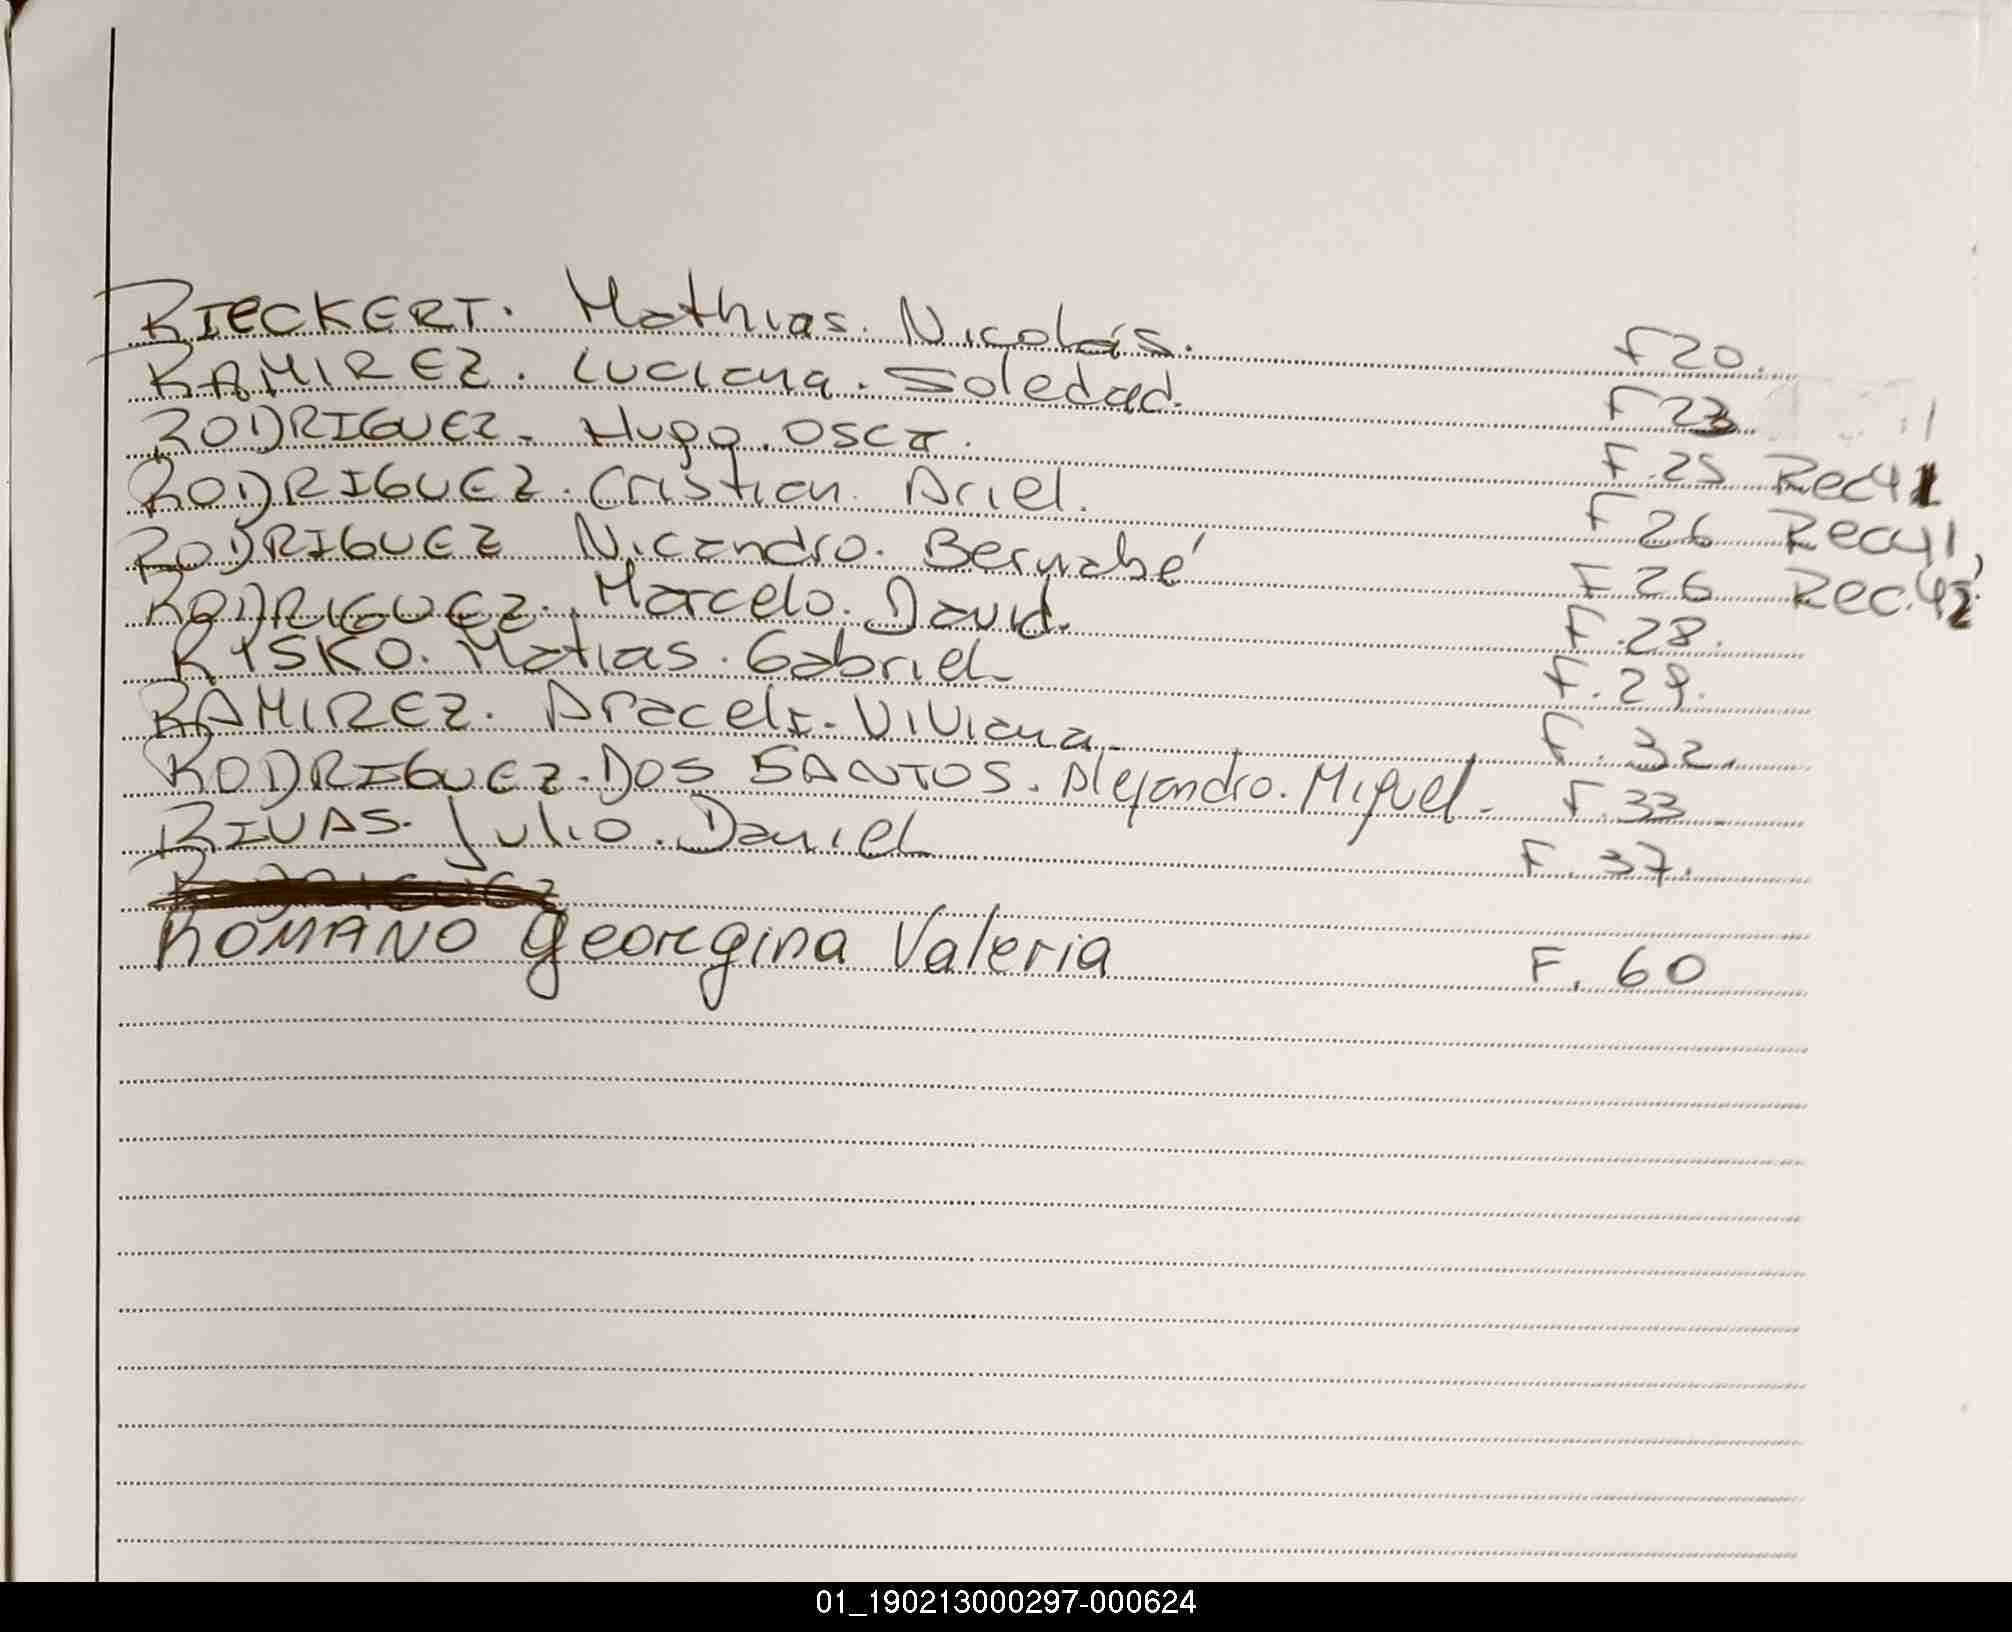 RIECKERT. Mathias. Nicolás. F20.
RAMIREZ. Luciana. Soledad. F23
RODRIGUEZ. Hugo. Oscar. F.25 Rec41
RODRIGUEZ. Cristian. Ariel. F26 Rec41
RODRIGUEZ Nicandro. Bernabé F26 Rec.42
RODRIGUEZ. Marcelo. David. F.28.
RYSKO. Matias. Gabriel F.29.
RAMIREZ. Araceli. Viviana F.32.
RODRIGUEZ. DOS SANTOS. Alejandro. Miguel. F.33
RIVAS. Julio. Daniel F.37.
RODRIGUEZ
ROMANO Georgina Valeria F. 60
01_190213000297-000624